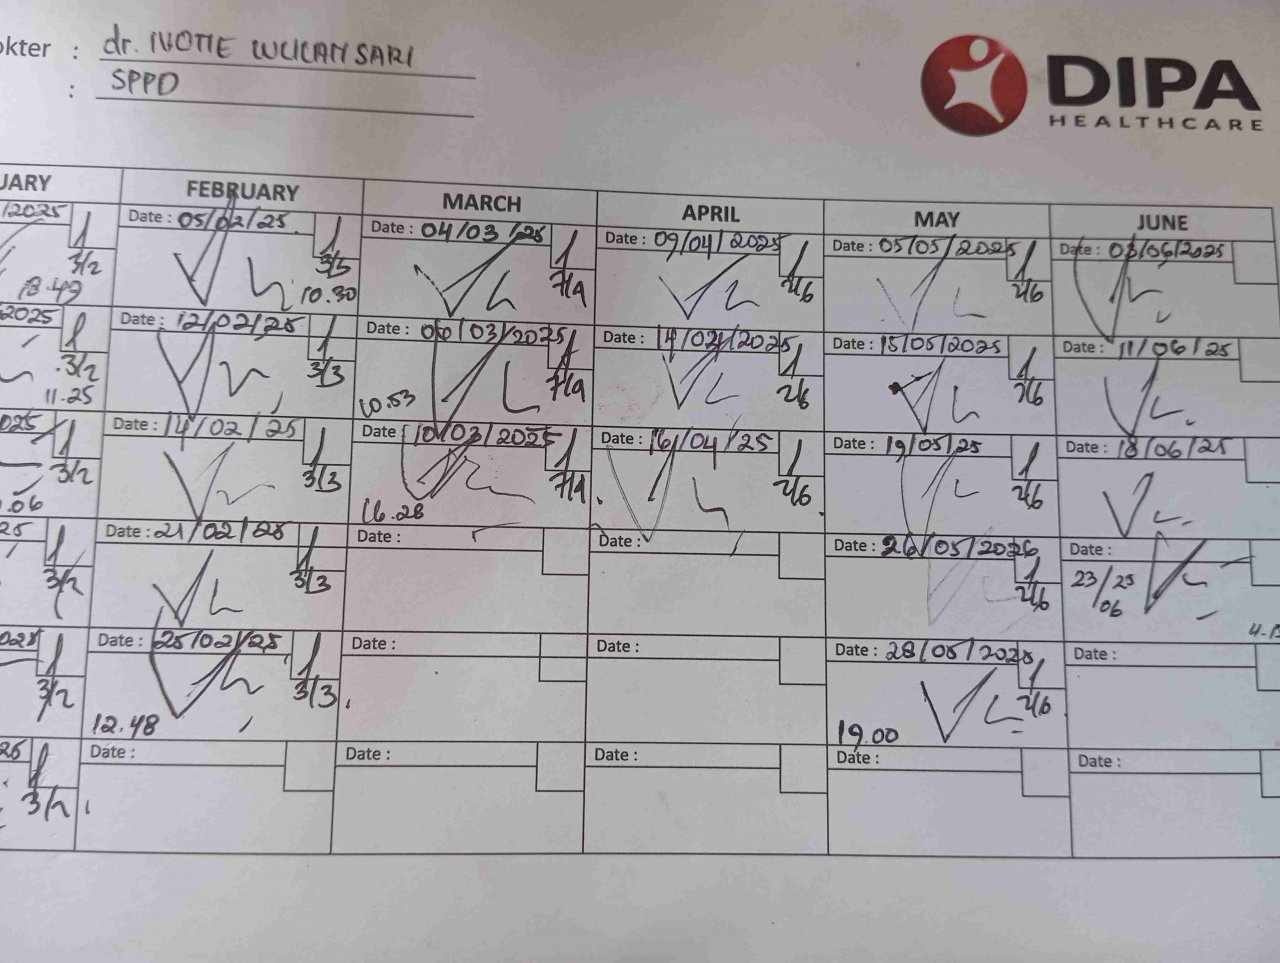 okter : dr. IVOTIE WULAN SARI
: SPPD
DIPA
HEALTHCARE
UARY FEBRUARY MARCH APRIL MAY JUNE
/2025 Date : 05/02/25 Date : 04/03/25 Date : 09/04/2025 Date : 05/05/2025 Date : 03/06/2025
3/2 3/3 7/4 2/6 2/6
18.49 10.30
2025 Date : 12/02/25 Date : 06/03/2025 Date : 14/04/2025 Date : 15/05/2025 Date : 11/06/25
3/2 3/3 7/4 2/6 2/6
11.25 10.53
025 Date : 14/02/25 Date : 10/03/2025 Date : 16/04/25 Date : 19/05/25 Date : 18/06/25
3/2 3/3 7/4 2/6 2/6
.06 16.28
25 Date : 21/02/25 Date : Date : Date : 26/05/2025 Date :
3/2 3/3 2/6 23/25
06
025 Date : 25/02/25 Date : Date : Date : 28/05/2025 Date :
3/2 3/3 2/6
12.48 19.00
25 Date : Date : Date : Date : Date :
3/2